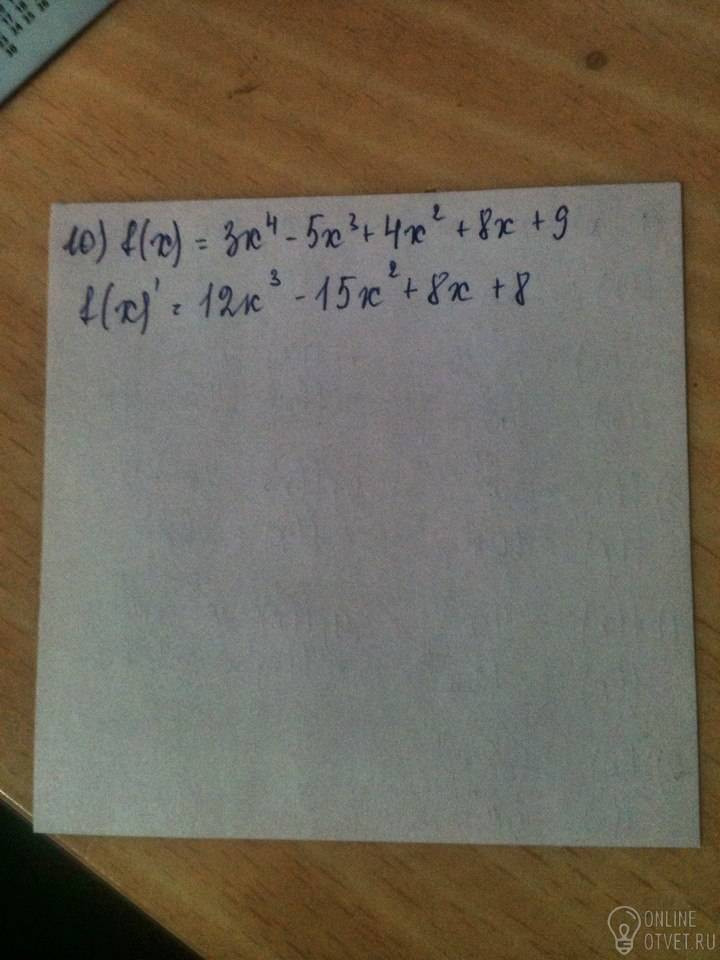 10) f(x) = 3x⁴ - 5x³ + 4x² + 8x + 9
f(x)' = 12x³ - 15x² + 8x + 8
ONLINE
OTVET.RU